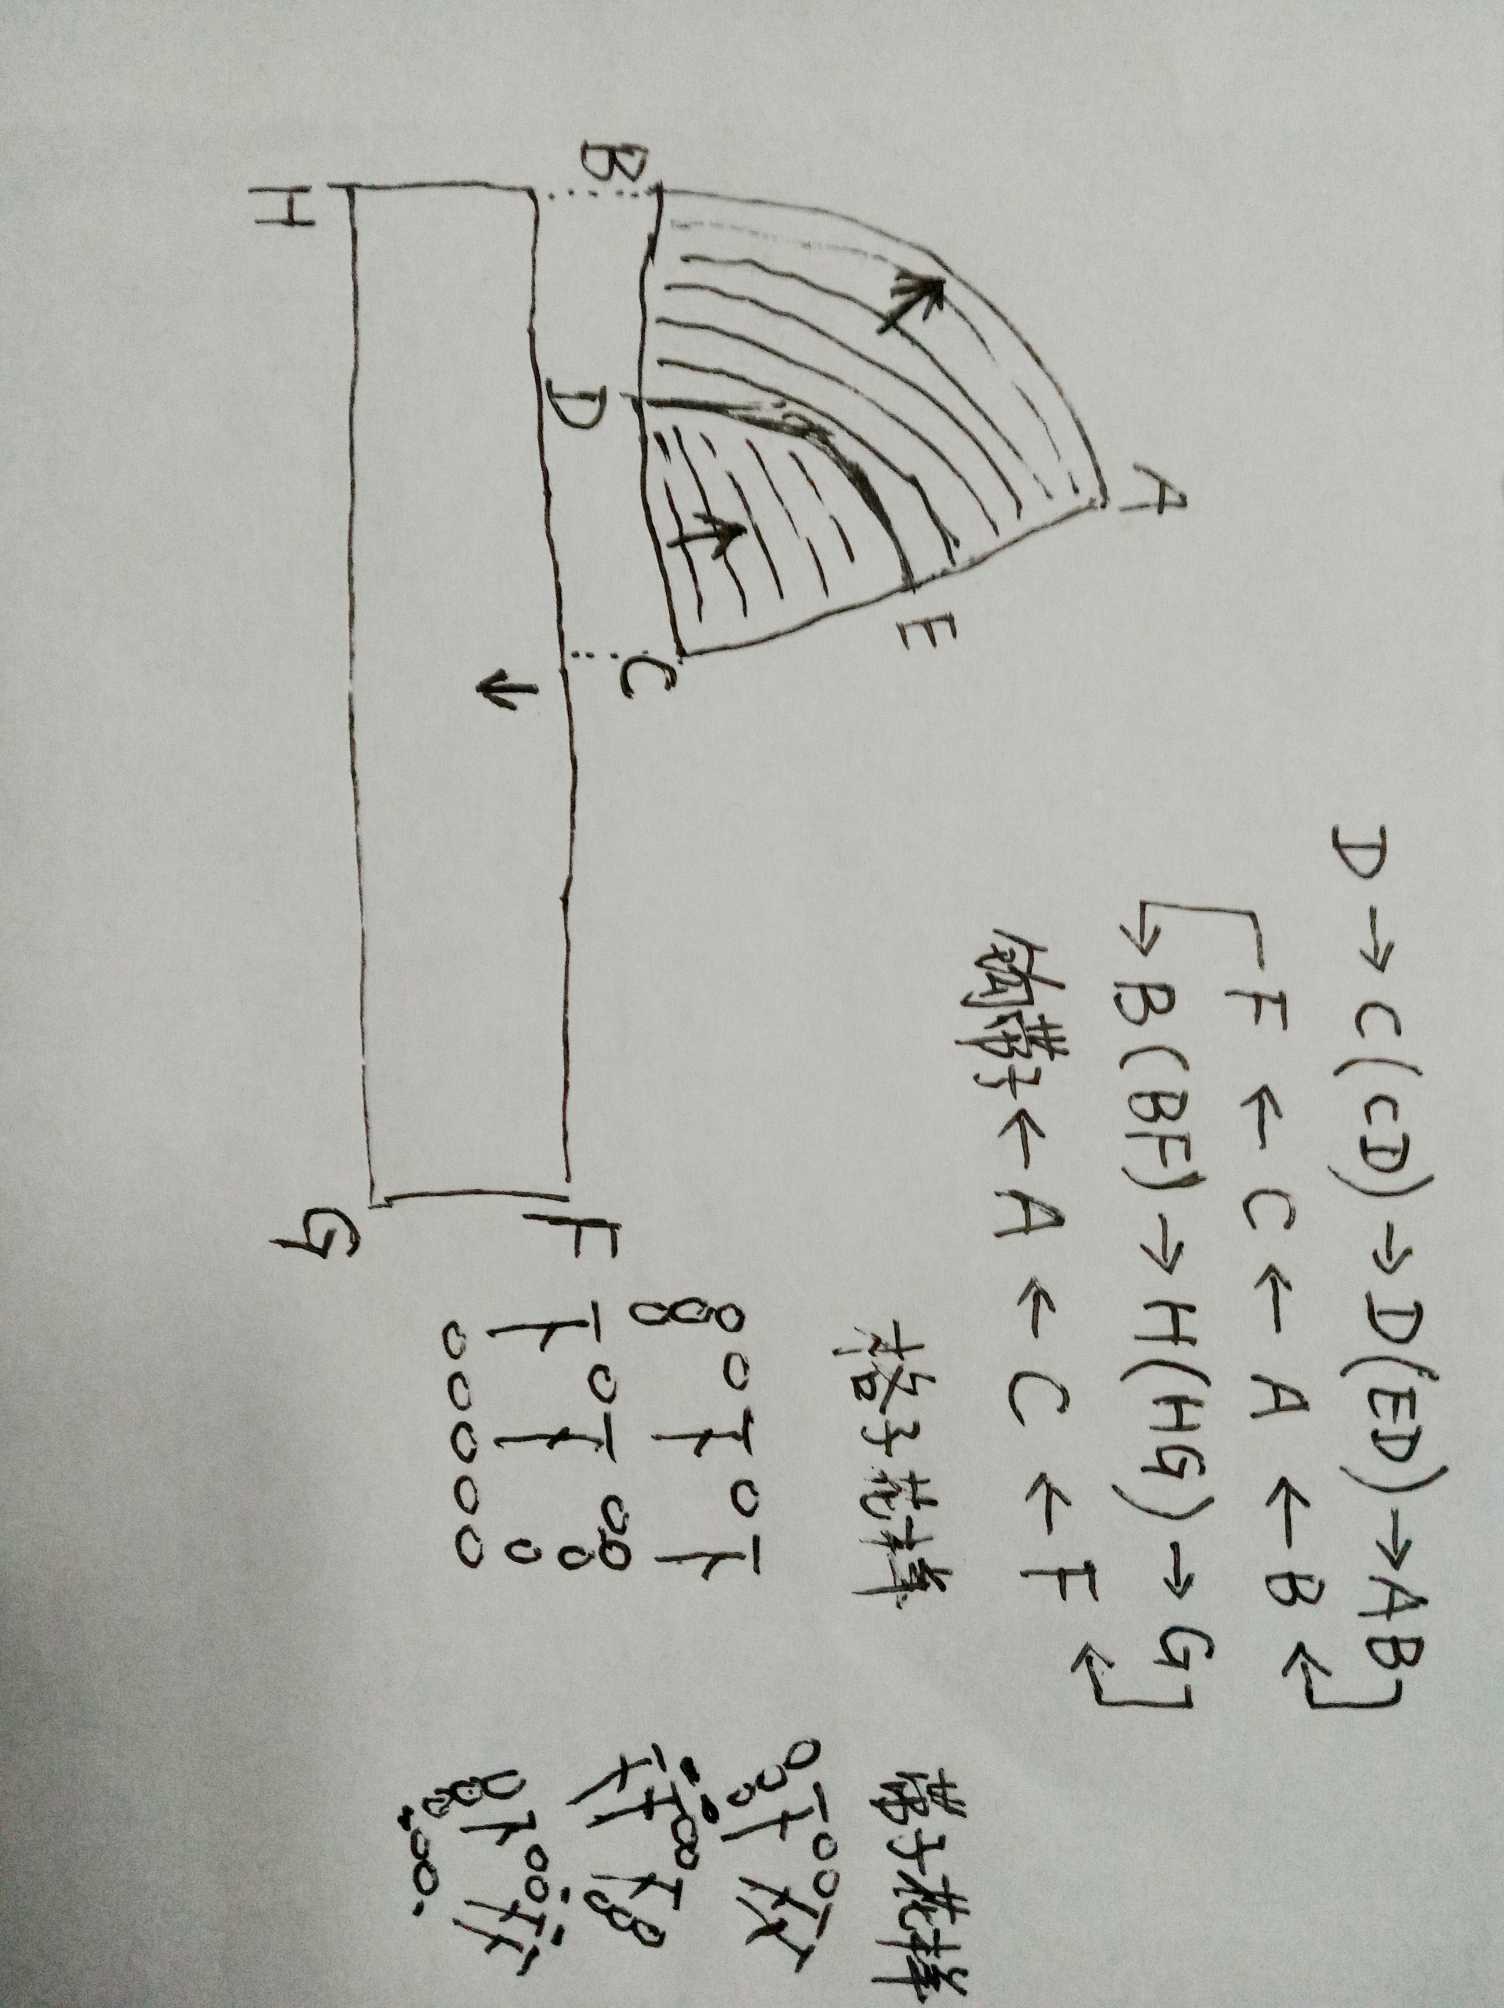 D→C(CD)→D(ED)→AB
F←C←A←B
B(BF)→H(HG)→G
钩带子←A←C←F
格子花样
带子花样
A
B
E
D
C
H
F
G